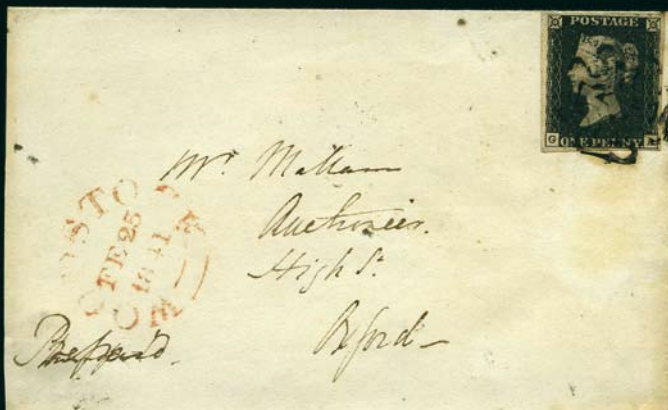 POSTAGE
G ONE PENNY A
Mr. Mallam
Auctioneer.
High St.
Oxford
FE 25
1841